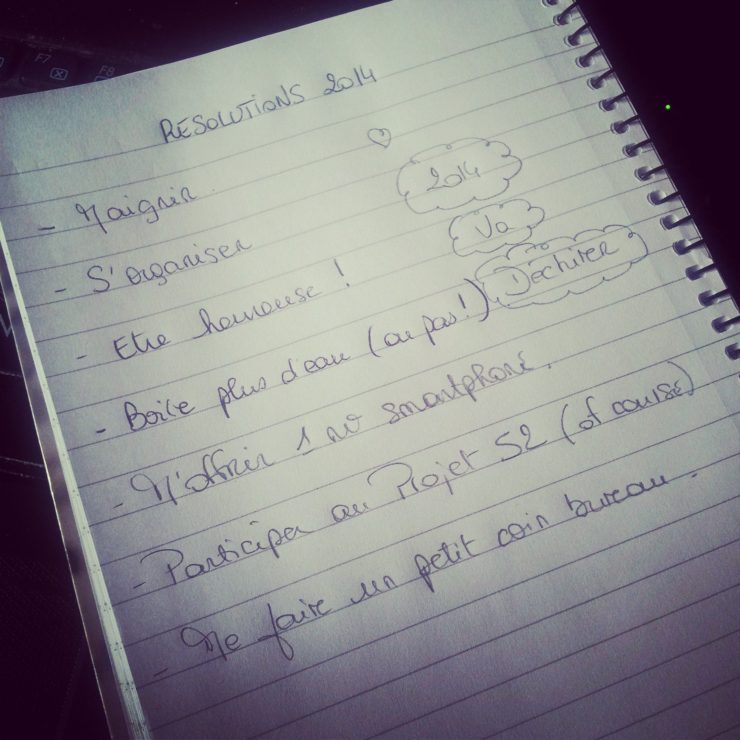 RESOLUTIONS 2014
- Maigrir
2014
- S'organiser
Va
- Etre heureuse !
Déchirer
- Boire plus d'eau (ou pas!)
- M'offrir 1 nv smartphone.
- Participer au Projet 52 (of course)
- Me faire un petit coin bureau.
F7
F8